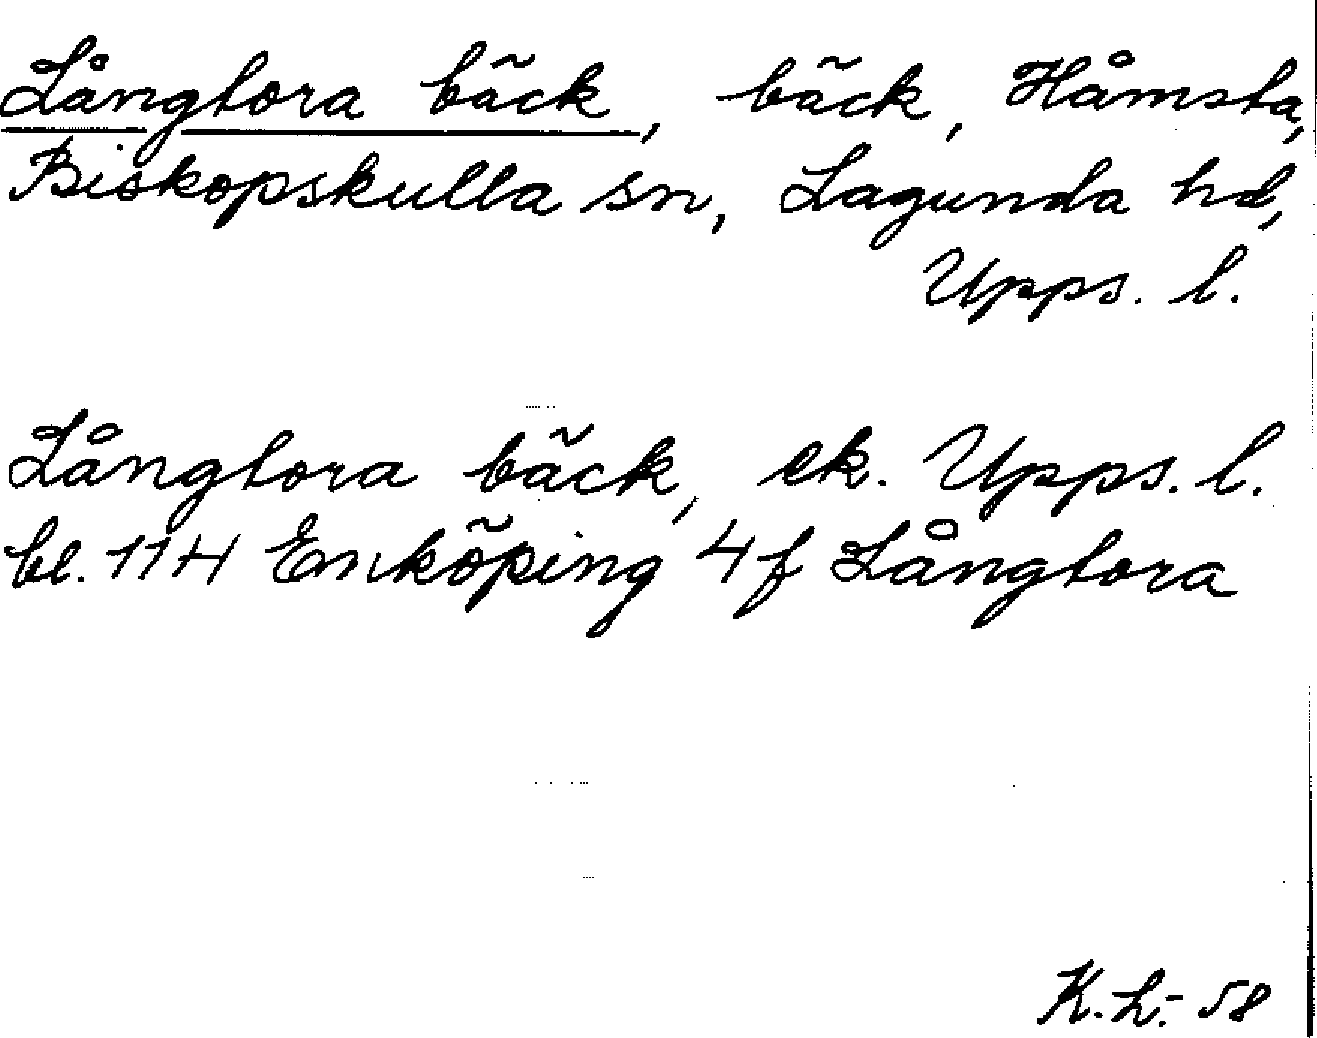 Långtora bäck, bäck, Håmsta,
Biskopskulla sn, Lagunda hd,
Upps. l.
Långtora bäck, ek. Upps. l.
bl. 114 Enköping 4f Långtora
K.L.-58